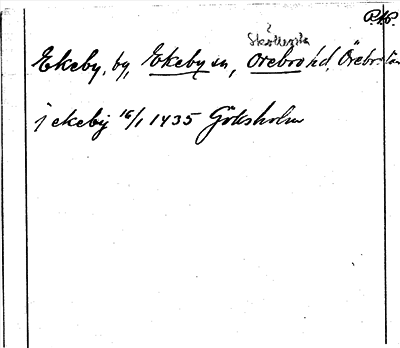 P.AP.
Skölersta
Ekeby, by, Ekeby sn, Örebro hd, Örebro län
j ekeby 16/1 1435 Göksholm